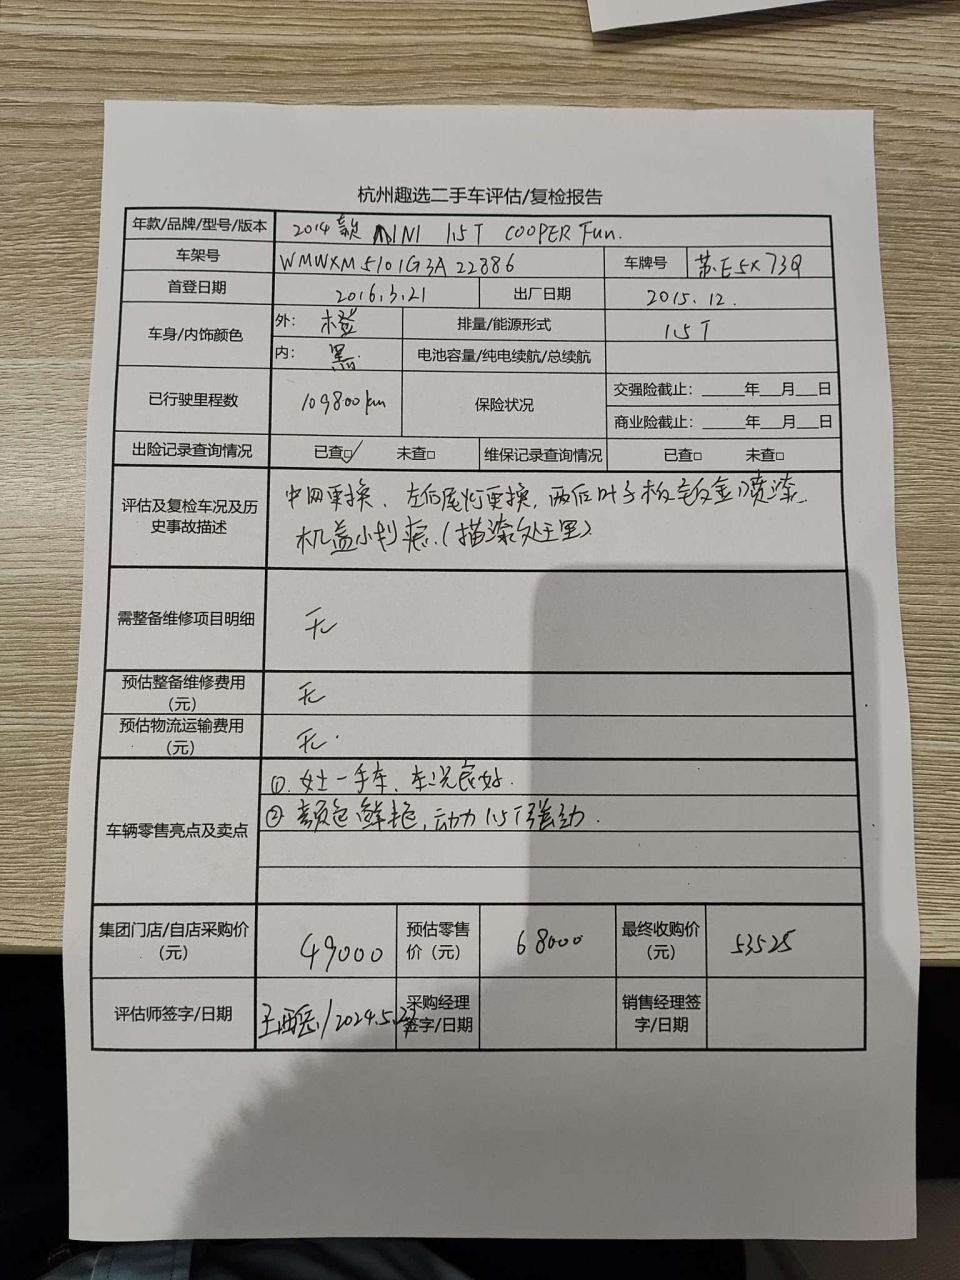 杭州趣选二手车评估/复检报告
年款/品牌/型号/版本 2014款 MINI 1.5T COOPER Fun.
车架号 WMWXM5101G3A22886 车牌号 苏E5X73Q
首登日期 2016.3.21 出厂日期 2015.12.
车身/内饰颜色 外: 橙 排量/能源形式 1.5T
内: 黑 电池容量/纯电续航/总续航
已行驶里程数 109800km 保险状况 交强险截止: ______年___月___日
商业险截止: ______年___月___日
出险记录查询情况 已查☑ 未查□ 维保记录查询情况 已查□ 未查□
评估及复检车况及历史事故描述 中网更换、左后尾灯更换,两后叶子板钣金喷漆.
机盖小划痕.(描漆处理)
需整备维修项目明细 无
预估整备维修费用(元) 无
预估物流运输费用(元) 无.
车辆零售亮点及卖点 ①. 女士一手车、车况良好.
② 颜色鲜艳,动力1.5T强劲.
集团门店/自店采购价(元) 49000 预估零售价(元) 68000 最终收购价(元) 53525
评估师签字/日期 /2024.5.27 采购经理签字/日期 销售经理签字/日期